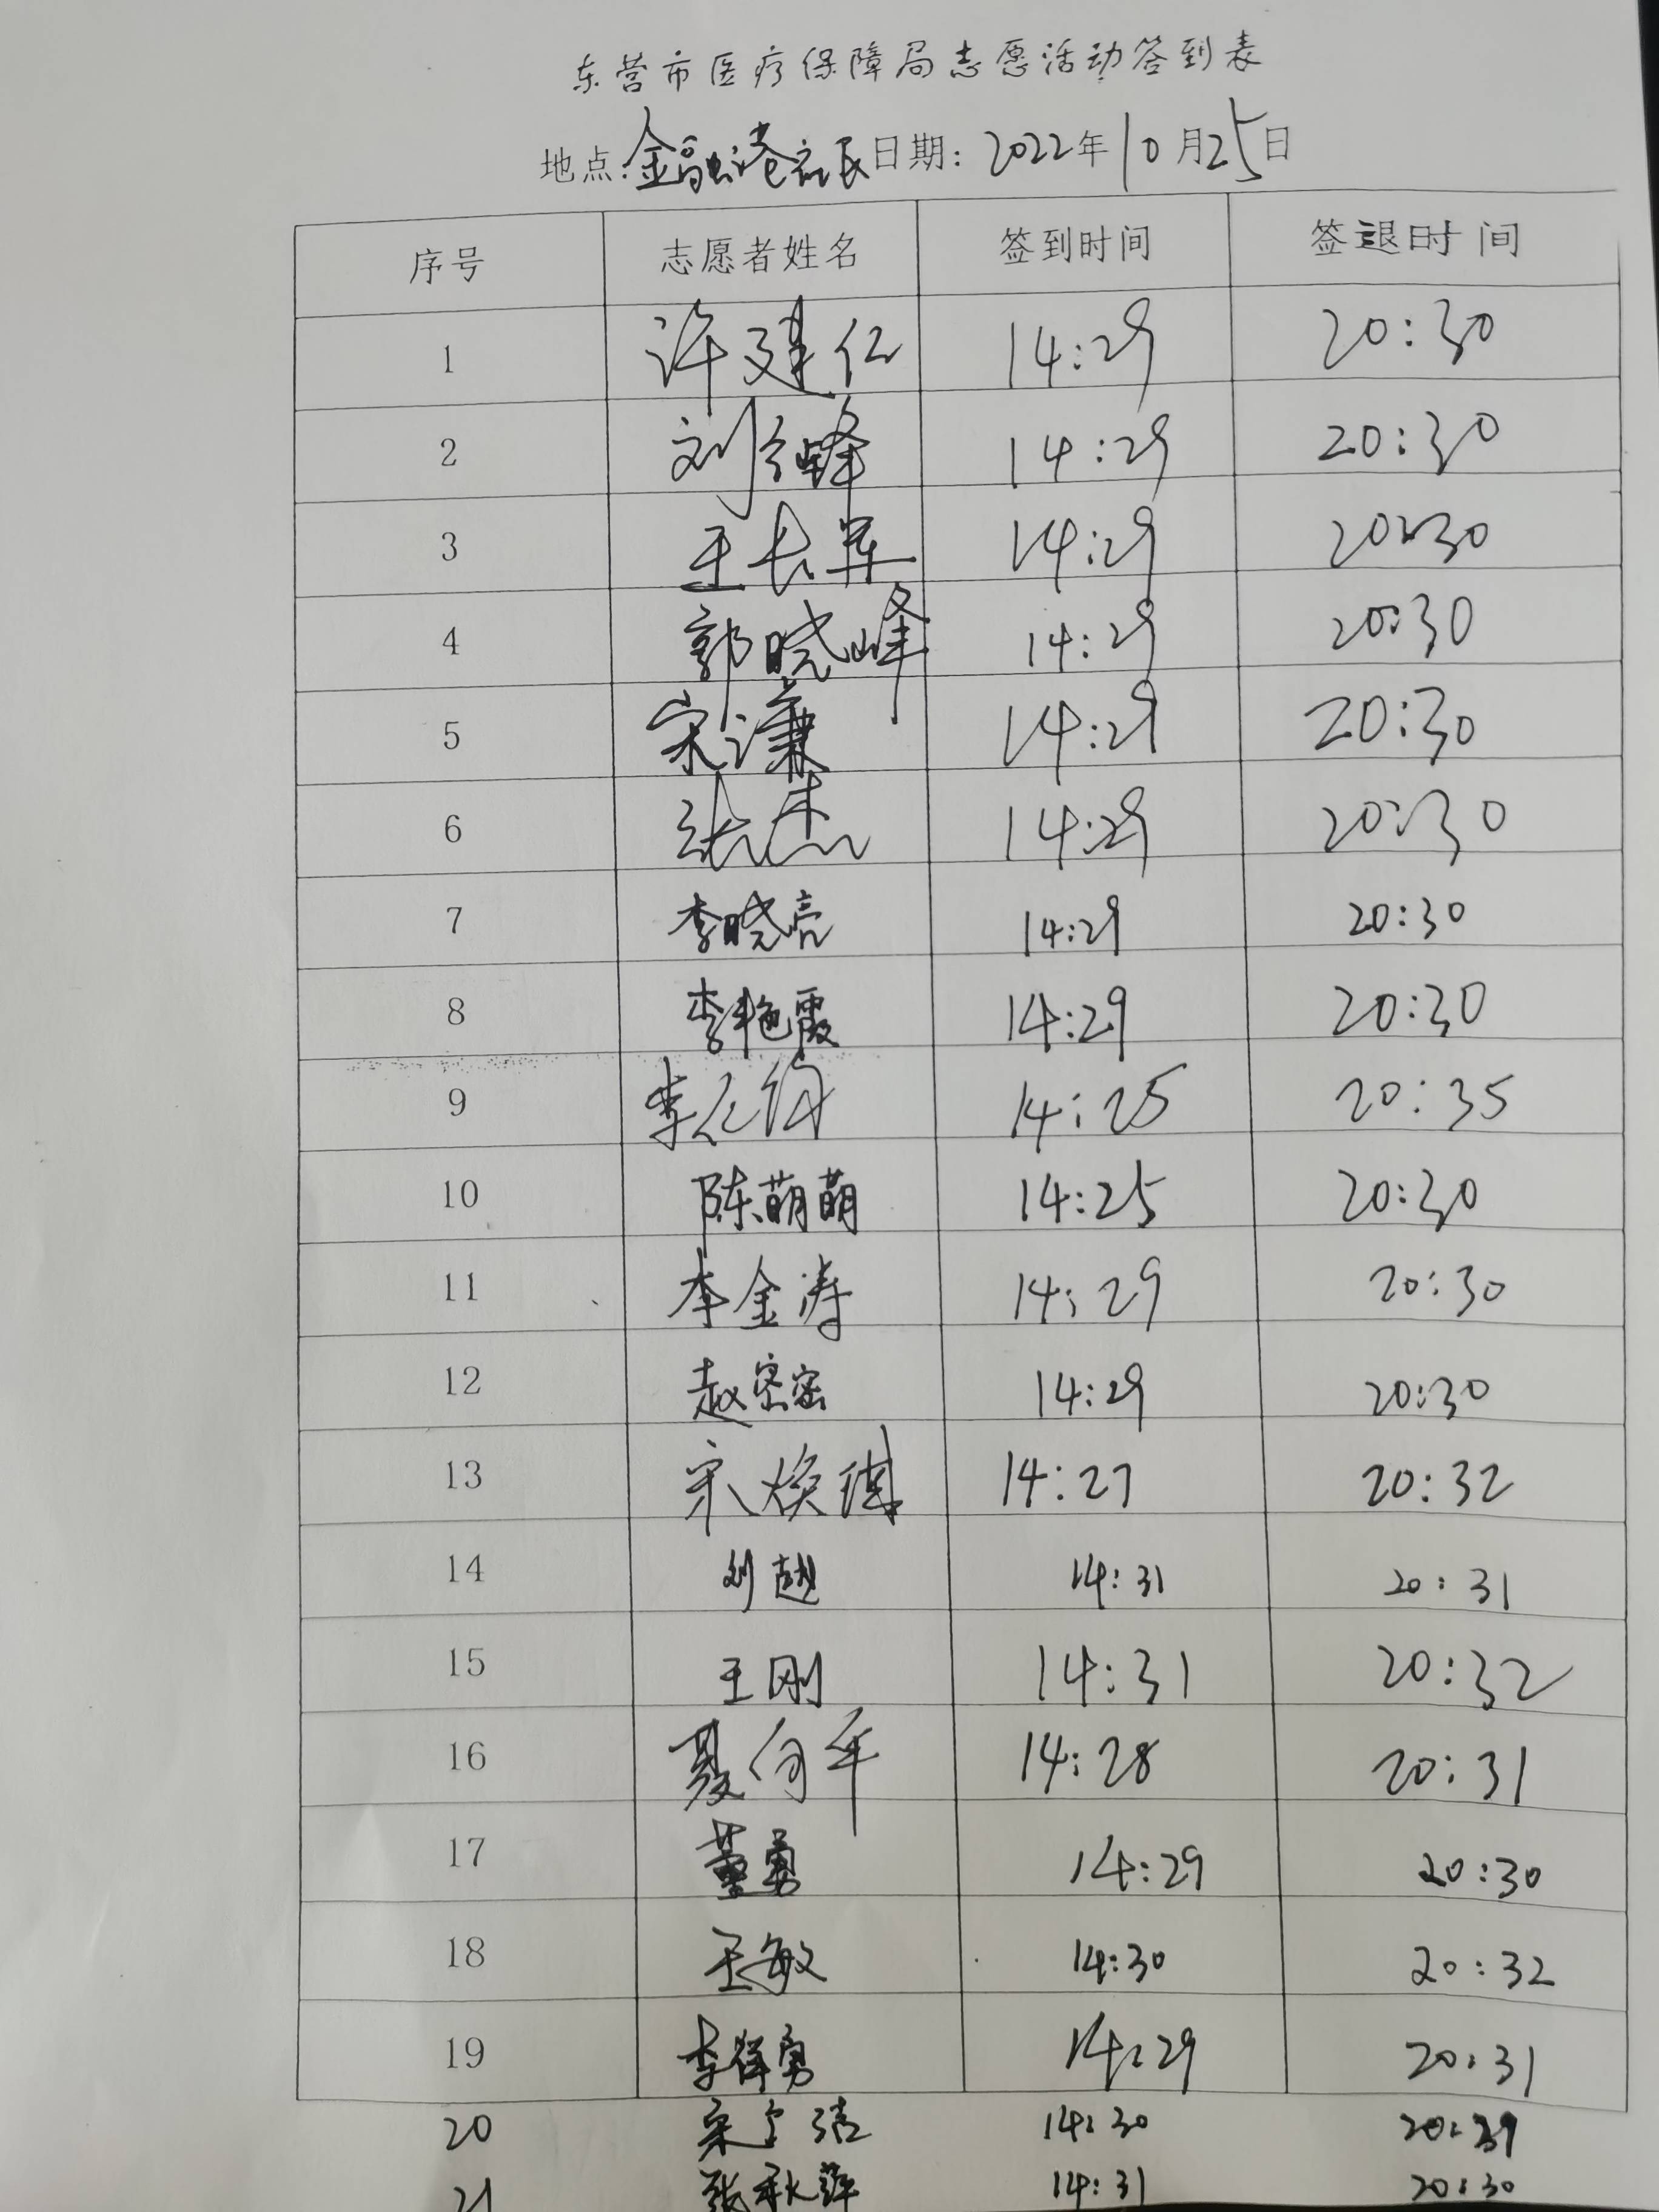 东营市医疗保障局志愿活动签到表
地点:金融港社区 日期: 2022年10月25日
序号 志愿者姓名 签到时间 签退时间
1 许建仁 14:29 20:30
2 刘 峰 14:29 20:30
3 王长军 14:29 20:30
4 郭晓峰 14:29 20:30
5 宋谦 14:29 20:30
6 张杰 14:29 20:30
7 李晓亮 14:29 20:30
8 李艳霞 14:29 20:30
9 李 14:25 20:35
10 陈萌萌 14:25 20:30
11 李金涛 14:29 20:30
12 赵密密 14:29 20:30
13 宋焕琪 14:27 20:32
14 刘超 14:31 20:31
15 王刚 14:31 20:32
16 聂向军 14:28 20:31
17 董勇 14:29 20:30
18 王敏 14:30 20:32
19 李祥勇 14:29 20:31
20 宋 14:30 20:39
21 张秋萍 14:31 20:30